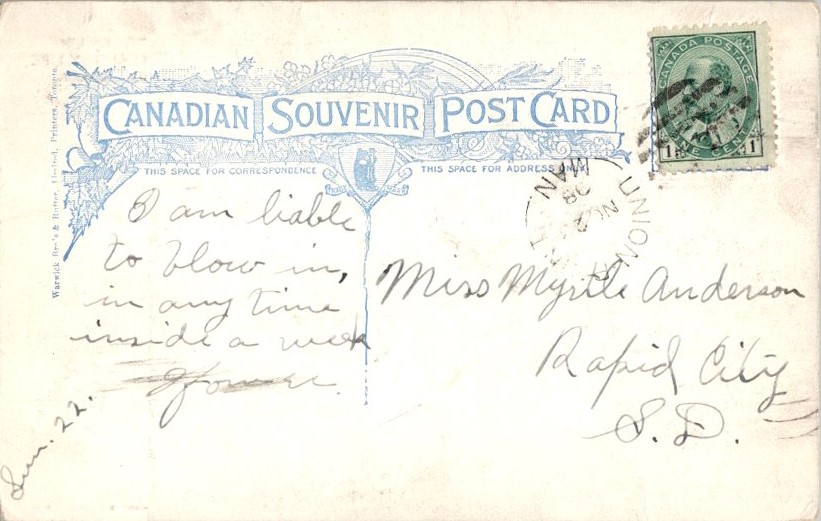 CANADIAN SOUVENIR POST CARD
THIS SPACE FOR CORRESPONDENCE
THIS SPACE FOR ADDRESS ONLY
CANADA POSTAGE
ONE CENT
1 1
UNION
MAN
08
Warwick Bro's & Rutter, Limited, Printers, Toronto.
I am liable
to blow in,
in any time
inside a week
Sun. 22.
Miss Myrtle Anderson
Rapid City
S.D.